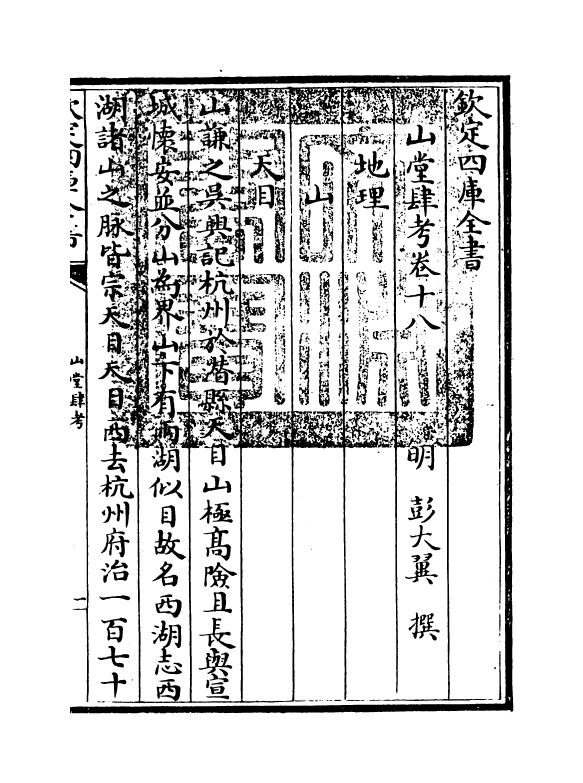 欽定四庫全書
山堂肆考卷十八
明 彭大翼 撰
地理
山
天目
山謙之吳興記杭州於替縣天目山極髙險且長與宣
城懷安並分山為界山下有兩湖似目故名西湖志西
湖諸山之脉皆宗天目天目西去杭州府治一百七十
欽定四庫全書
山堂肆考
一